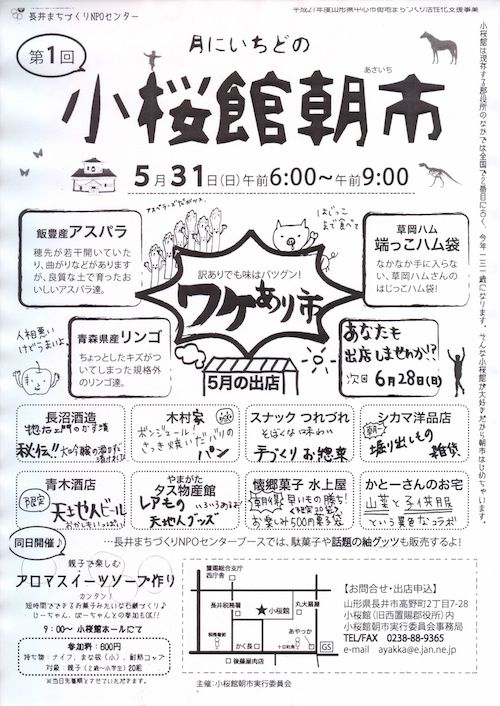 長井まちづくりNPOセンター
平成21年度山形県中心市街地まちづくり活性化支援事業
第1回
月にいちどの
あさいち
小桜館朝市
5月31日(日)午前6:00〜午前9:00
小桜館は現存する郡役所のなかでは全国で2番目に古く、今年一三一歳になります。そんな小桜館が大好きだから朝市はじめちゃいます。
飯豊産アスパラ
穂先が若干開いていた
り、曲がりなどがあります
が、良質な土で育ったお
いしいアスパラ達。
はじっこ
まで食べて
草岡ハム
端っこハム袋
なかなか手に入らな
い、草岡ハムさんの
はじっこハム袋!
訳ありでも味はバツグン!
ワケあり市
人相悪い
けどうまいよ。
青森県産リンゴ
ちょっとしたキズがつ
いてしまった規格外
のリンゴ達。
5月の出店
あなたも
出店しませんか!?
次回 6月28日(日)
長沼酒造
惣右エ門のかす漬
秘伝!!
木村家
ボンジュール!
さっき焼いたバリの
パン
スナック つれづれ
そぼくな味わい
手づくりお惣菜
シカマ洋品店
朝一
掘り出しもの
雑貨
青木酒店
限定
天地人ビール
おかしもいっぱい!
やまがた
タス物産館
レアもの
いろいろあるよ!
天地人グッズ
懐郷菓子 水上屋
朝市価格
早いもの勝ち!
お楽しみ500円菓子袋
かとーさんのお宅
山菜と子供服
という異色なコラボ
同日開催♪
…長井まちづくりNPOセンターブースでは、駄菓子や話題の紬グッツも販売するよ!
親子で楽しむ
アロマスイーツソープ作り
カンタン!
短時間でできるお菓子みたいな石鹸づくり♪
じーちゃん、ばーちゃんとの参加もOK!!
9:00〜 小桜館ホールにて
参加料:600円
持ち物:ナイフ、まな板(小)、耐熱コップ
対象:親子(2歳〜小学生)20組
※当日先着順とさせていただきます。
置賜総合支庁
西庁舎
長井税務署
★小桜館
丸大扇屋
かく長
あやっか
十日町角
GS
後藤屋肉店
【お問合せ・出店申込】
山形県長井市高野町2丁目7-28
小桜館(旧西置賜郡役所)内
小桜館朝市実行委員会事務局
TEL/FAX 0238-88-9365
e-mail ayakka@e.jan.ne.jp
主催:小桜館朝市実行委員会